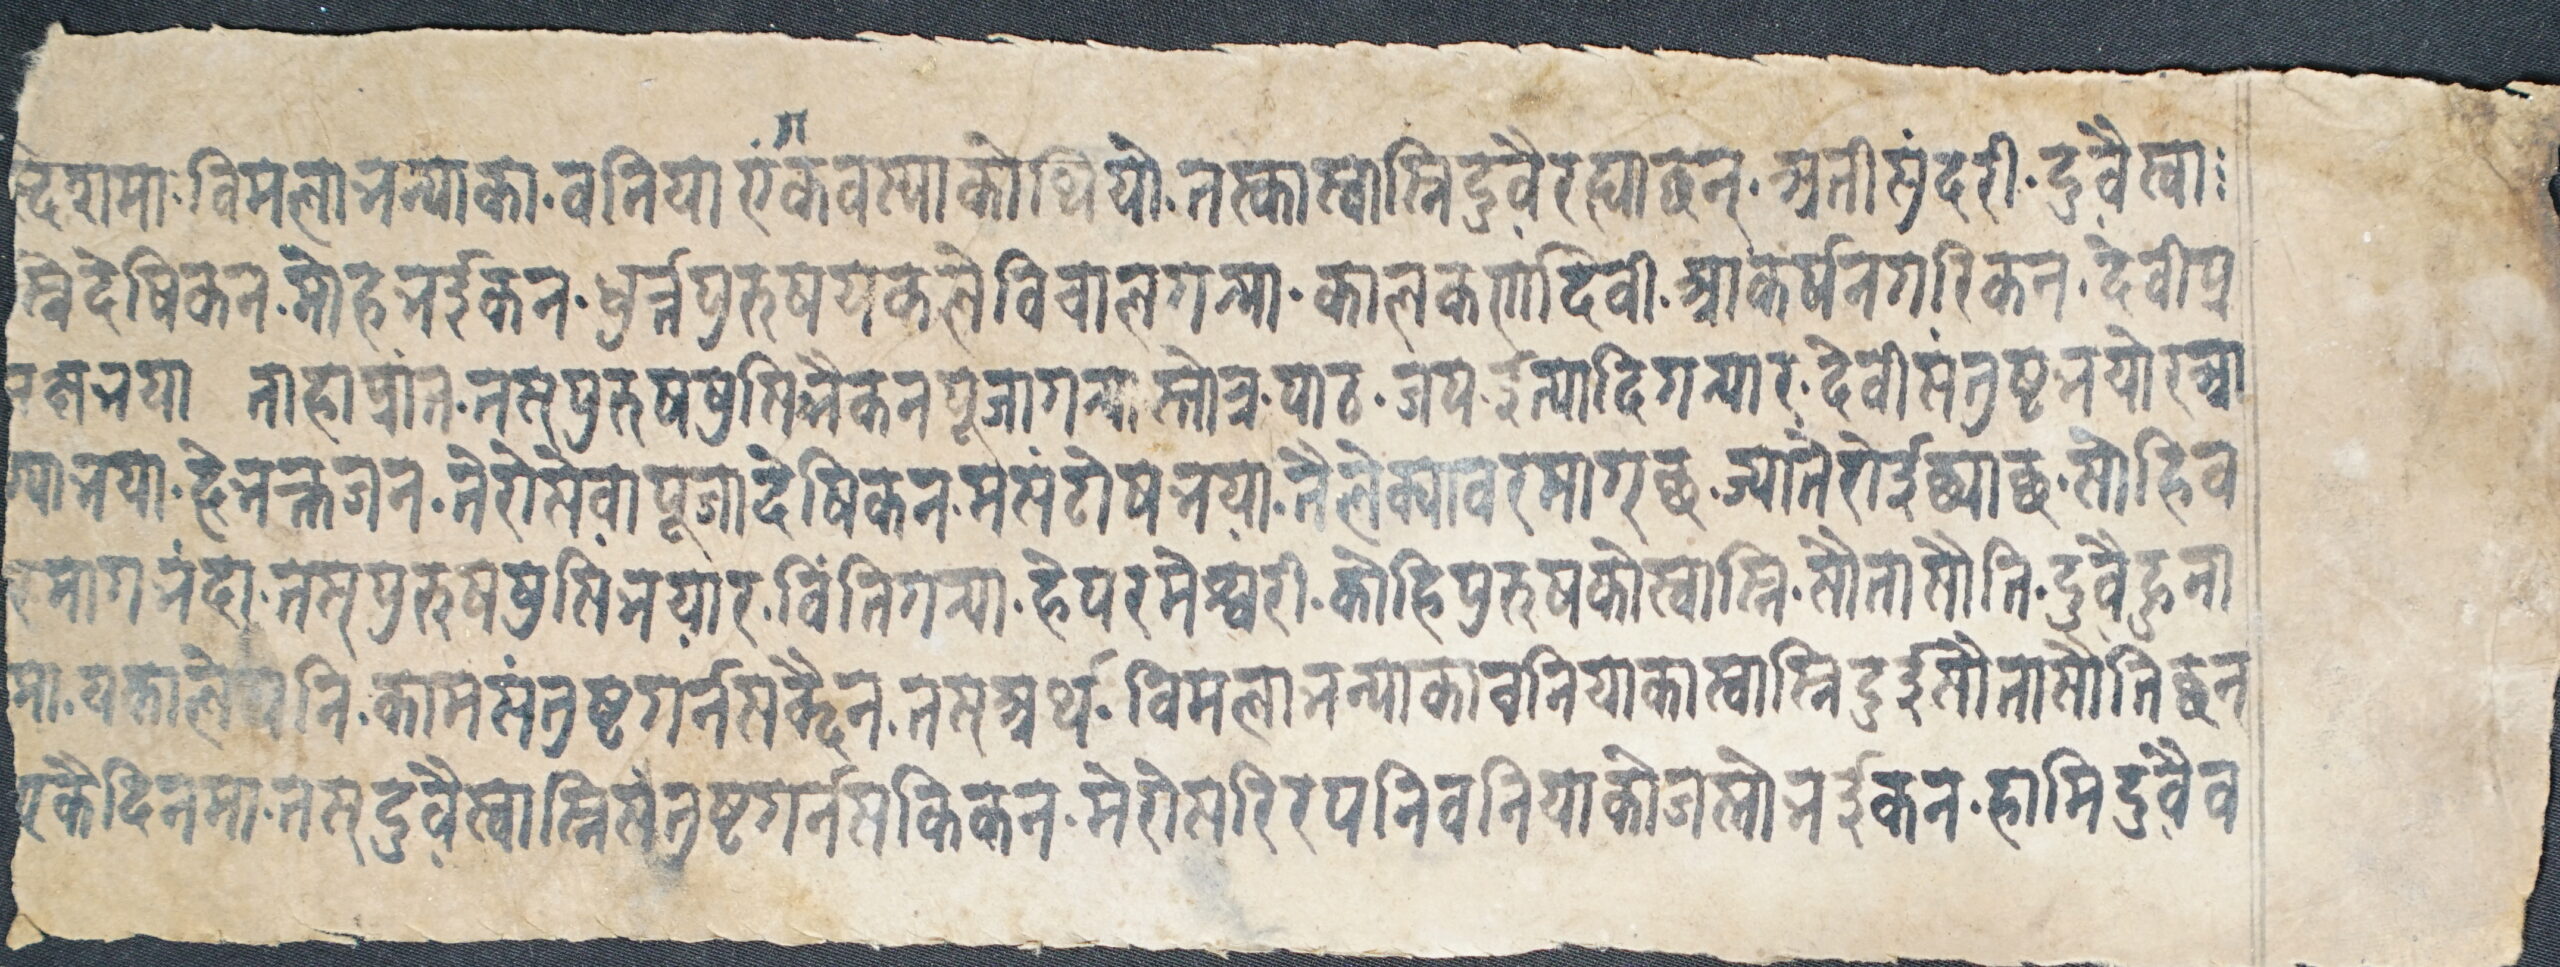 देशमा. विमला भन्याका. वनिया एंक वस्याको थियो. तस्का स्वास्नि दुवै रह्याछन्. अती सुंदरी. दुवै स्वा
स्नि देषिकन. मोह भईकन. धुर्त्त पुरुष यकले विचाल गर्‍या. काल कर्णा देवी. आकर्षन गरिकन. देवी प्र
तक्ष भया ताहा प्रांत. तस् पुरुष षुसि भैकन पूजा गर्‍या स्तोत्र. पाठ. जप. ईत्यादि गर्‍यार. देवी संतुष्ट भयो र आ
ग्या भया. हे भक्त जन. तेरो सेवा पूजा देषिकन. म संटोष भया. तैले क्या वर मागछ. ज्या तेरो ईछ्या छ. सोहि व
र माग भंदा. तस् पुरुष षुसि भयार. विंति गर्‍या. हे परमेश्वरी. कोहि पुरुषको स्वास्नि. सौता सौति. दुवै हुना
मा. यक्ताले पनि. काम संतुष्ट गर्न सक्दैन. तस् अर्थ. विमला भन्याका वनियाका स्वास्नि दुई सौता सौति छन
यकै दिनमा. तस् दुवै स्वास्नि संतुष्ट गर्न सकिकन. मेरो सरिर पनि वनियाको जस्तो भईकन. हामि दुवै व